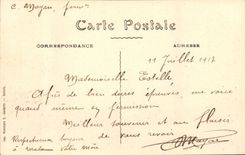 C. Mayan
Carte Postale
CORRESPONDANCE
ADRESSE
11 Juillet 1917
Mademoiselle Estelle
Après de bien dures épreuves, me voici
quand même en permission
Meilleur souvenir et au plaisir
de vous revoir
bonjour
à madame votre mère
Mayan